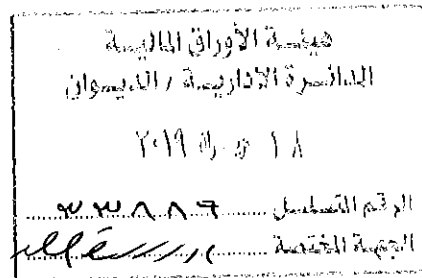 هيئة الأوراق المالية
الدائرة الادارية / الديوان
١٨ ٢٠١٩
الرقم المتسلسل ٣٣٨٨٦
الجهة المختصة